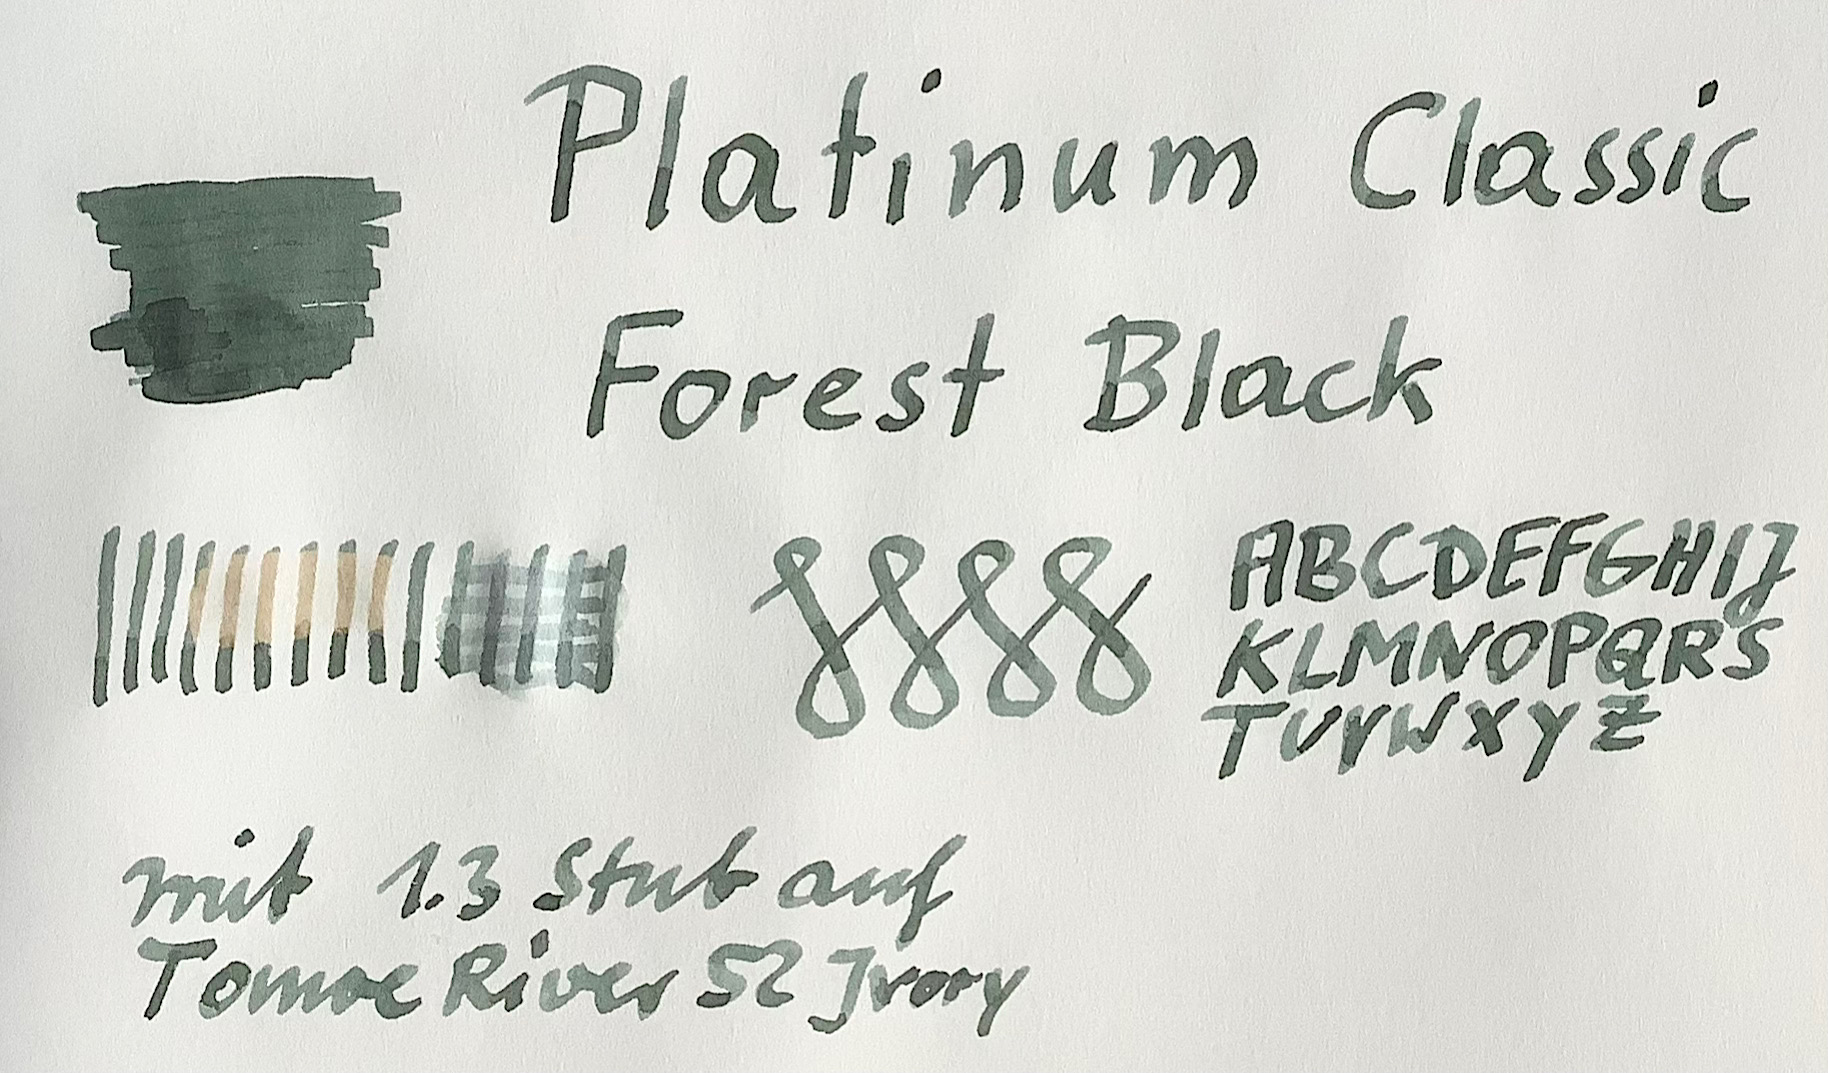 Platinum Classic
Forest Black
ABCDEFGHIJ
KLMNOPQRS
TUVWXYZ
mit 1.3 Stub auf
Tomoe River 52 Ivory